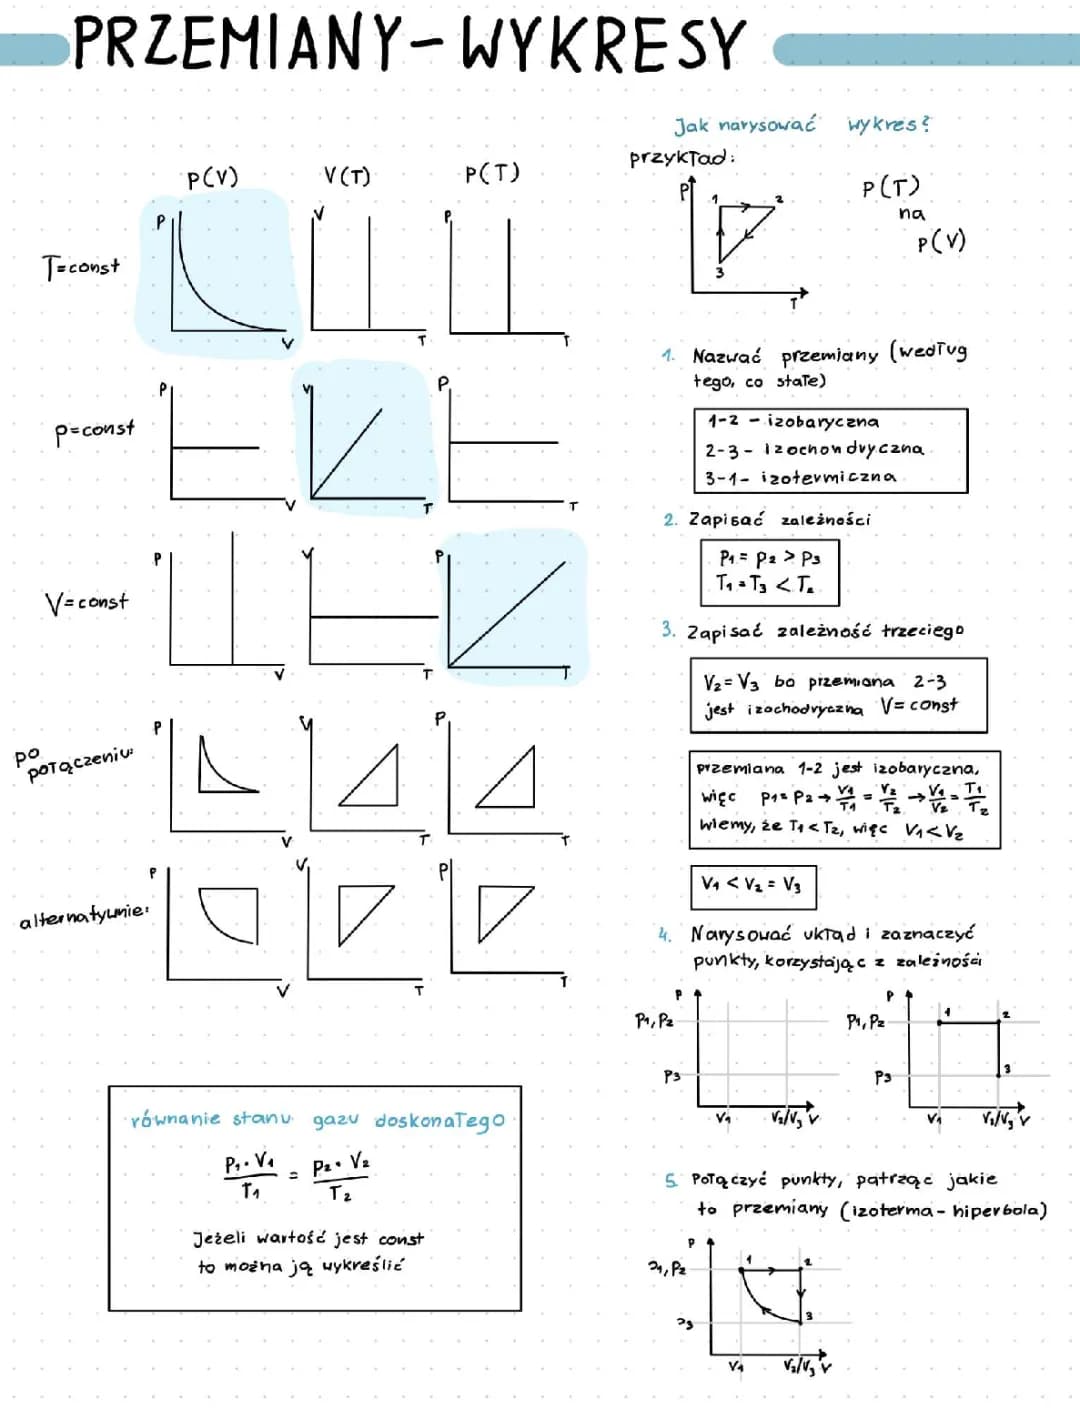 PRZEMIANY-WYKRESY
p(V) V(T) p(T)
T=const
P V V T P T
p=const
P V V T P T
V=const
P V V T P T
po
połączeniu:
P V V T P T
alternatywnie:
P V V T P T
równanie stanu gazu doskonałego
P₁·V₁/T₁ = P₂·V₂/T₂
Jeżeli wartość jest const
to można ją wykreślić
Jak narysować wykres?
przykład:
P 1 2 3 T
p(T)
na
p(V)
1. Nazwać przemiany (według
tego, co stałe)
1-2 - izobaryczna
2-3- izochondryczna
3-1- izotermiczna
2. Zapisać zależności
P₁ = P₂ > P₃
T₁ = T₃ < T₂
3. Zapisać zależność trzeciego
V₂=V₃ bo przemiana 2-3
jest izochodryczna V=const
przemiana 1-2 jest izobaryczna,
więc P₁=P₂→ V₁/T₁ = V₂/T₂ → V₁/V₂ = T₁/T₂
wiemy, że T₁<T₂, więc V₁<V₂
V₁ < V₂ = V₃
4. Narysować układ i zaznaczyć
punkty, korzystając z zależności
P
P₁, P₂
P₃
V₁ V₂/V₃ V
P
P₁, P₂ 1 2
P₃ 3
V₁ V₂/V₃ V
5 Połączyć punkty, patrząc jakie
to przemiany (izoterma- hiperbola)
P
P₁, P₂ 1 2
P₃ 3
V₁ V₂/V₃ V